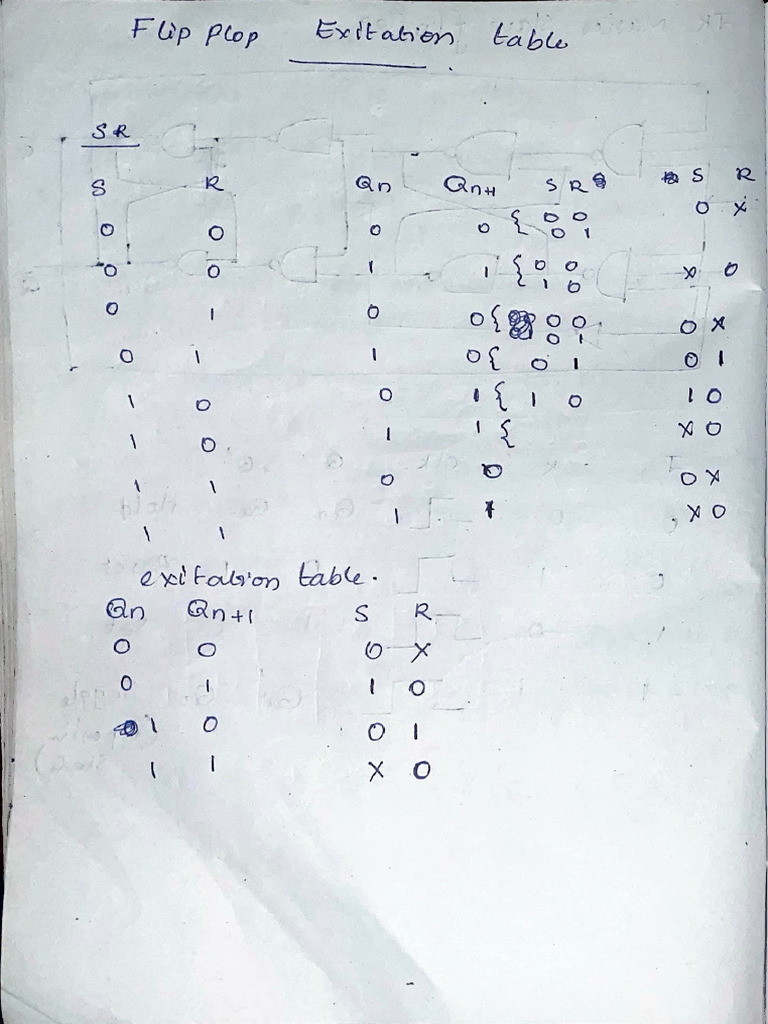 Flip Plop Exitation table
SR
S R Qn Qn+1 S R S R
0 0 0 0 { 0 0 0 X
0 1
0 0 1 1 { 0 0 X 0
1 0
0 1 0 0 { 0 0 0 X
0 1
0 1 1 0 { 0 1 0 1
1 0 0 1 { 1 0 1 0
1 0 1 1 { X 0
1 1 0 0 0 X
1 1 1 1 X 0
exitation table.
Qn Qn+1 S R
0 0 0 X
0 1 1 0
1 0 0 1
1 1 X 0